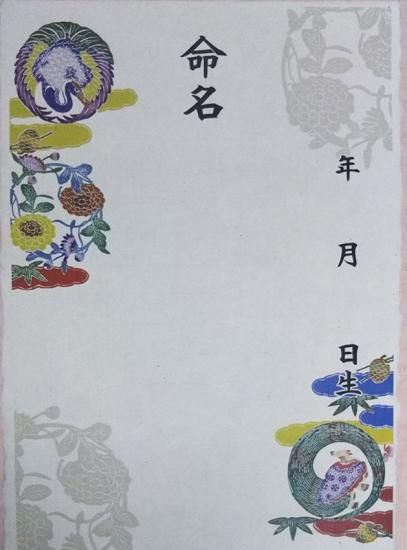 年 月 日生
命名